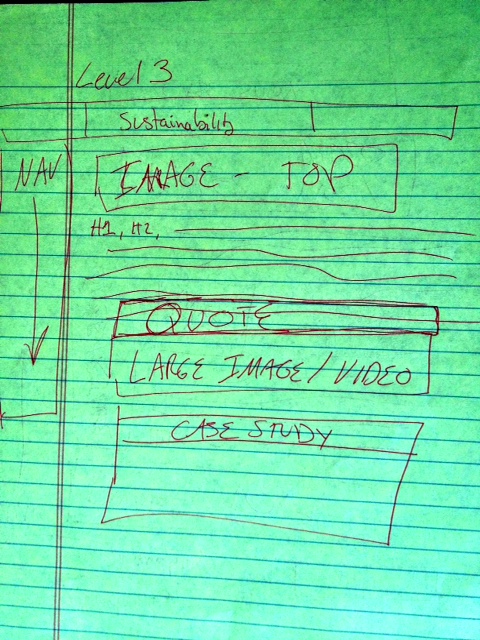 Level 3
Sustainability
NAV
IMAGE - TOP
H1, H2,
QUOTE
LARGE IMAGE/VIDEO
CASE STUDY